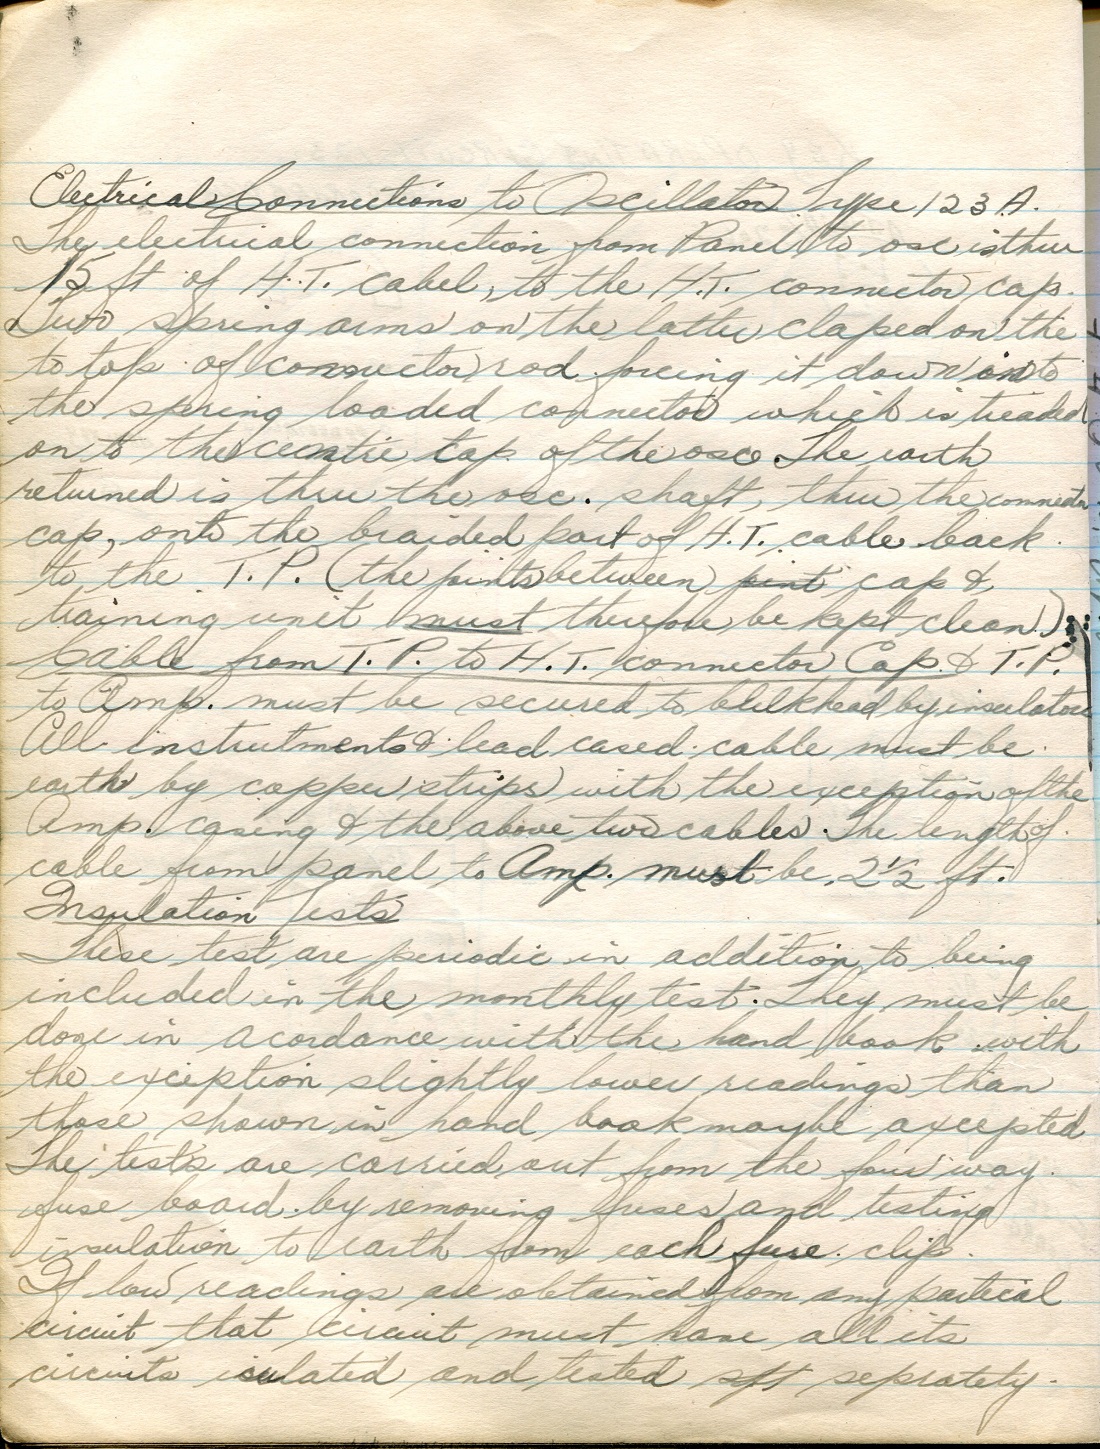 Electrical Connections to Oscillator Type 123 A.
The electrical connection from Panel to osc is thru
15 ft of H.T. cabel, to the H.T. connector cap.
Two spring arms on the latter claped on the
to top of connector rod forcing it down onto
the spring loaded connector which is treaded
on to the centre tap of the osc. The earth
returned is thru the osc. shaft, thru the connector
cap, onto the braided part of H.T. cable back
to the T.P. (the joints between joint cap &
training unit must therefore be kept clean!)
Cable from T.P. to H.T. connector Cap. & T.P.
to Amp. must be secured to bulkhead by insulators
All instrutments & lead cased cable must be
earth by copper strips with the exception of the
Amp. casing & the above two cables. The length of
cable from panel to Amp. must be 2 1/2 ft.
Insulation Tests
These test are periodic in addition to being
included in the monthly test. They must be
done in acordance with the hand book with
the exception slightly lower readings than
those shown in hand book maybe axcepted
The tests are carried out from the four way
fuse board by removing fuses and testing
insulation to earth from each fuse clip.
If low readings are obtained from any partical
circuit that circuit must have all its
circuits isulated and tested seprately.